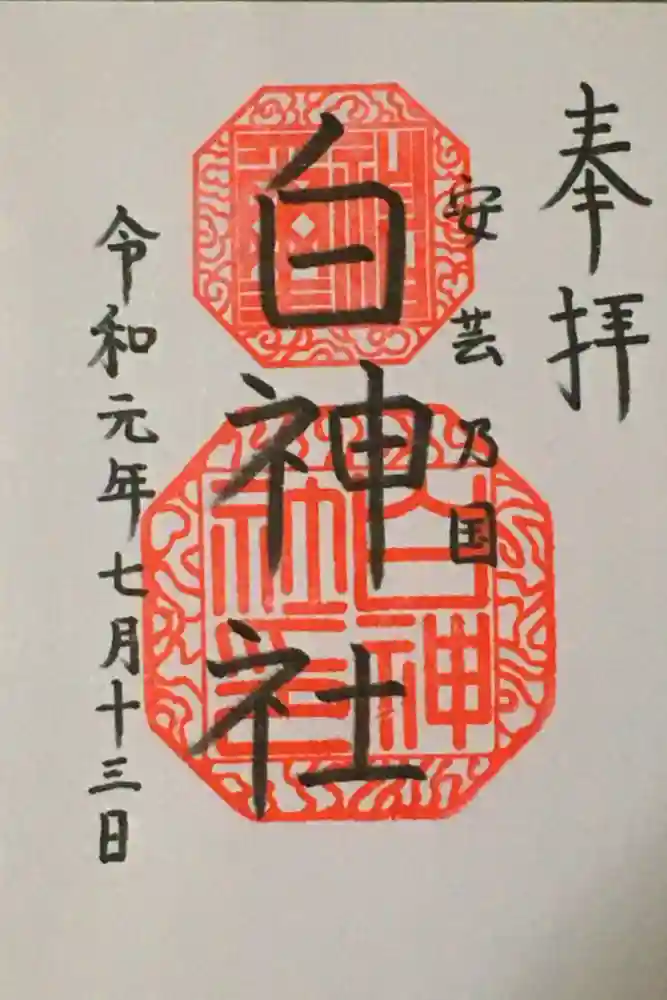 奉拝
安芸乃国
白神社
令和元年七月十三日
白神
社印